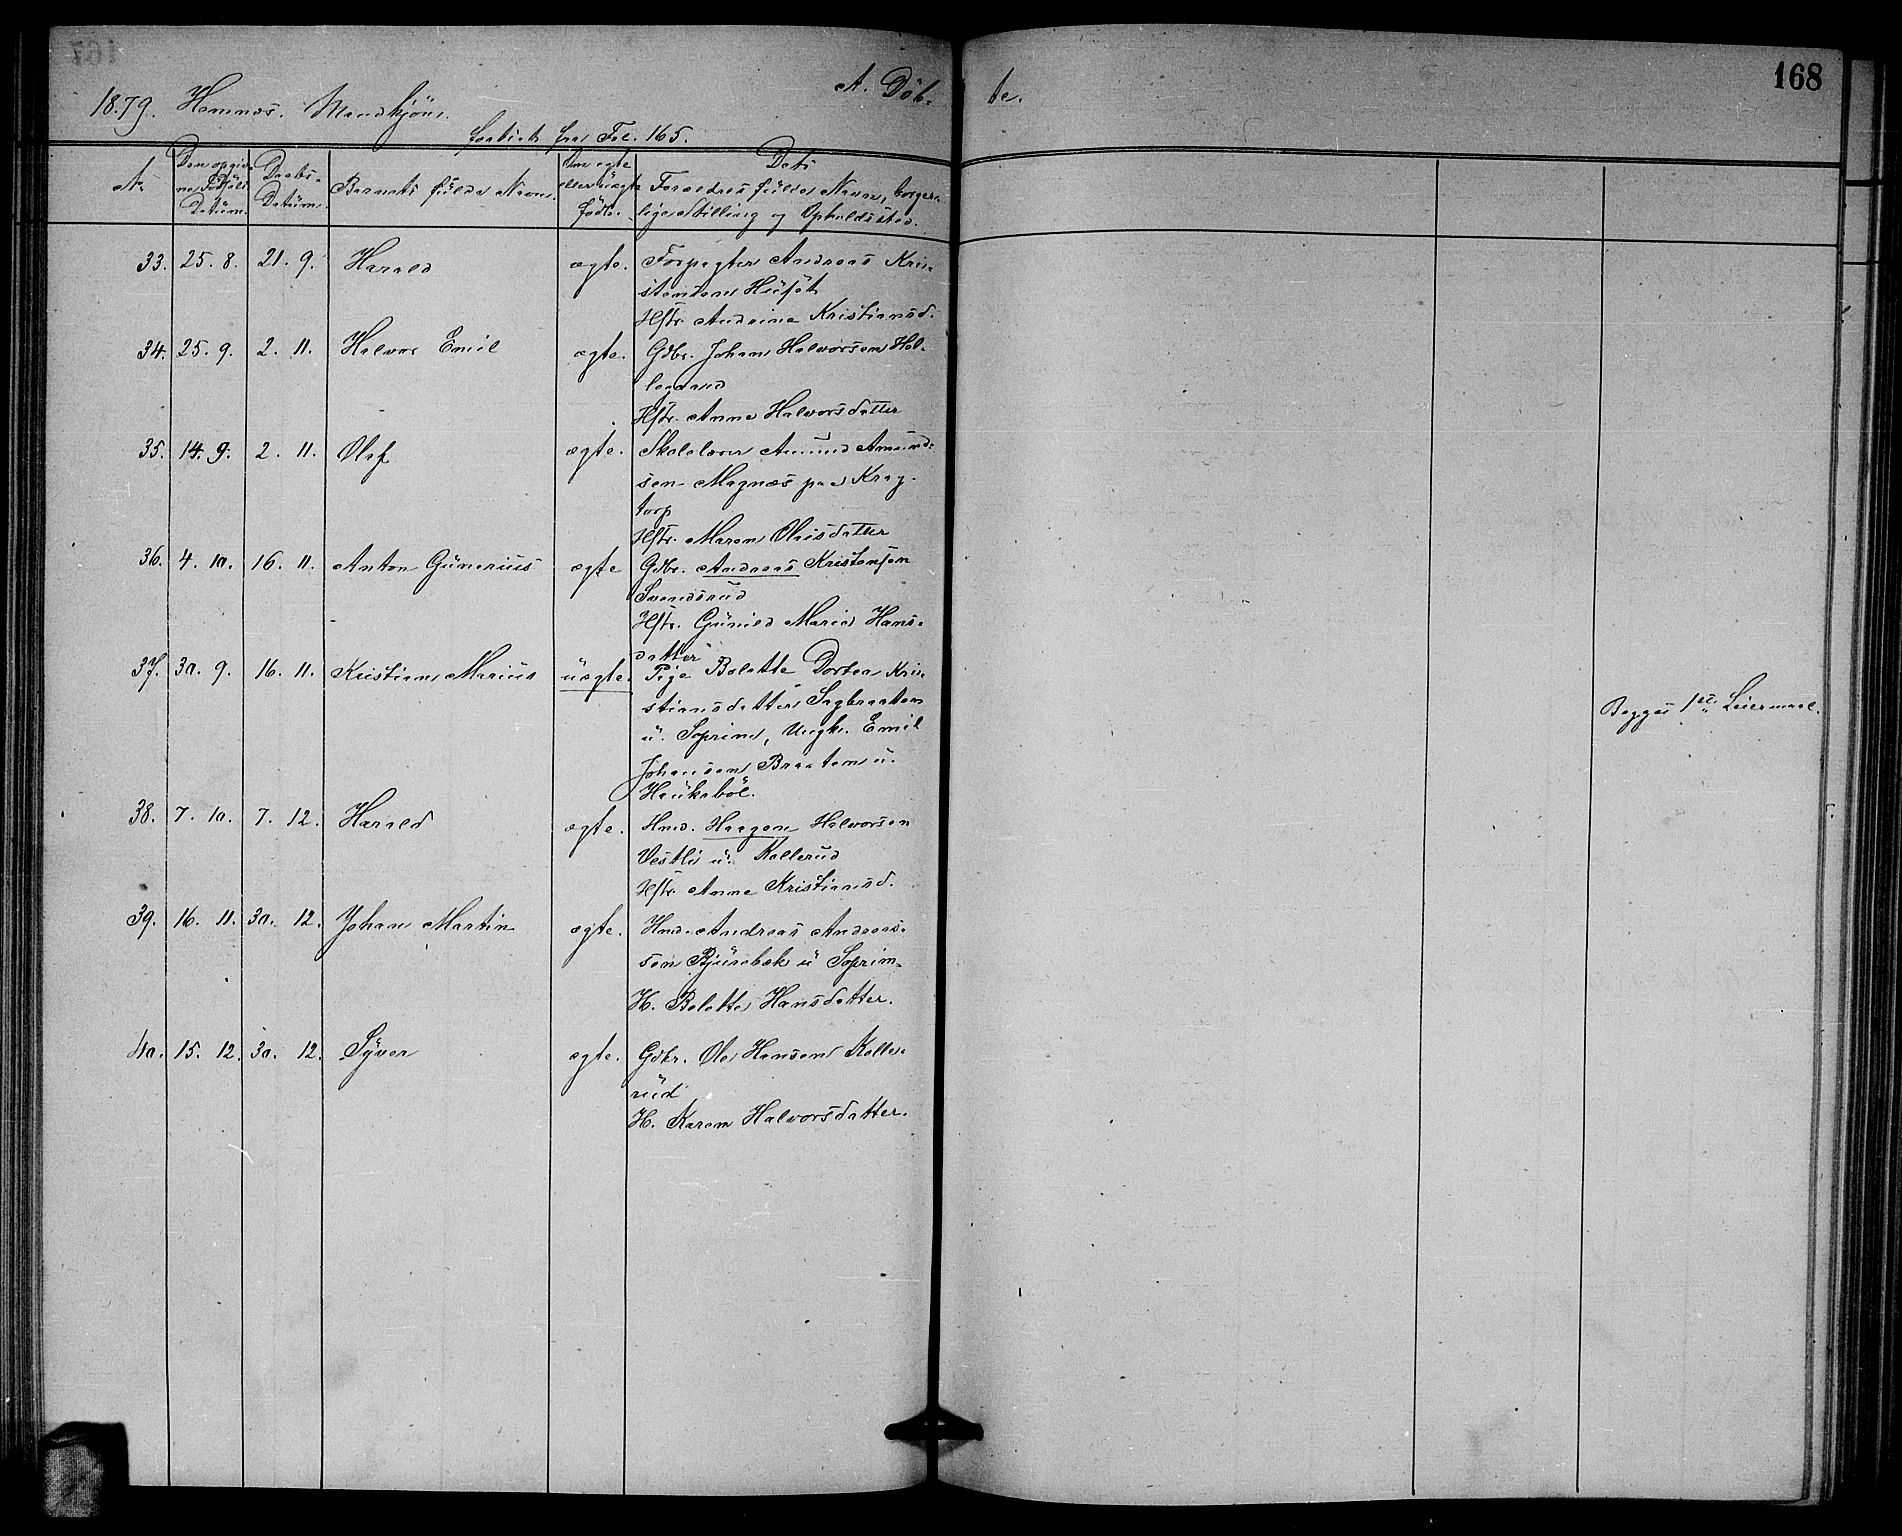 168
A. Döb- te.
1879. Hemnæs. Mandkjön.
fortsat fra Fol. 165.
No
Den opgiv-
ne Födsels
Datum.
Daabs-
Datum.
Barnets fulde Navn.
Om ægte
eller uægte
födte.
Dets
Foreldres fulde Navn, borger-
lige Stilling og Opholdssted.
33. 25. 8. 21. 9. Harald ægte. Forpagter Andreas Kri-
stensen Hüset
Hstr. Andrine Kristiansd.
34. 25. 9. 2. 11. Halvor Emil ægte. Gdbr. Johan Halvorsen
Hstr. Anne Halvorsdatter
35. 14. 9. 2. 11. Olaf ægte. Skolelærer Amund Amund-
sen Magnæs paa Krag-
torp
Hstr. Maren Olaisdatter
36. 4. 10. 16. 11. Anton Günerius ægte Gdbr. Andreas Kristensen
Svendsrud
Hstr. Günild Marie Hans-
datter
37. 30. 9. 16. 11. Kristian Marius uægte. Pige Bolette Dortea Kri-
stiansdatter Sagbraaten
u. Soprim, Ungk. Emil
Johansen Braaten u.
Haukeböl.
Begges 1ste Leiermaal.
38. 7. 10. 7. 12. Harald ægte. Hmd. Haagen Halvorsen
Vestli u. Kollerud
Hstr. Anne Kristiansd.
39. 16. 11. 30. 12. Johan Martin ægte. Hmd. Andreas Andreas-
sen Bjürebæk u Soprim-
H. Bolette Hansdatter.
40. 15. 12. 30. 12. Syver ægte. Gdbr. Ole Hansen Kolle-
rud
H. Karen Halvorsdatter.